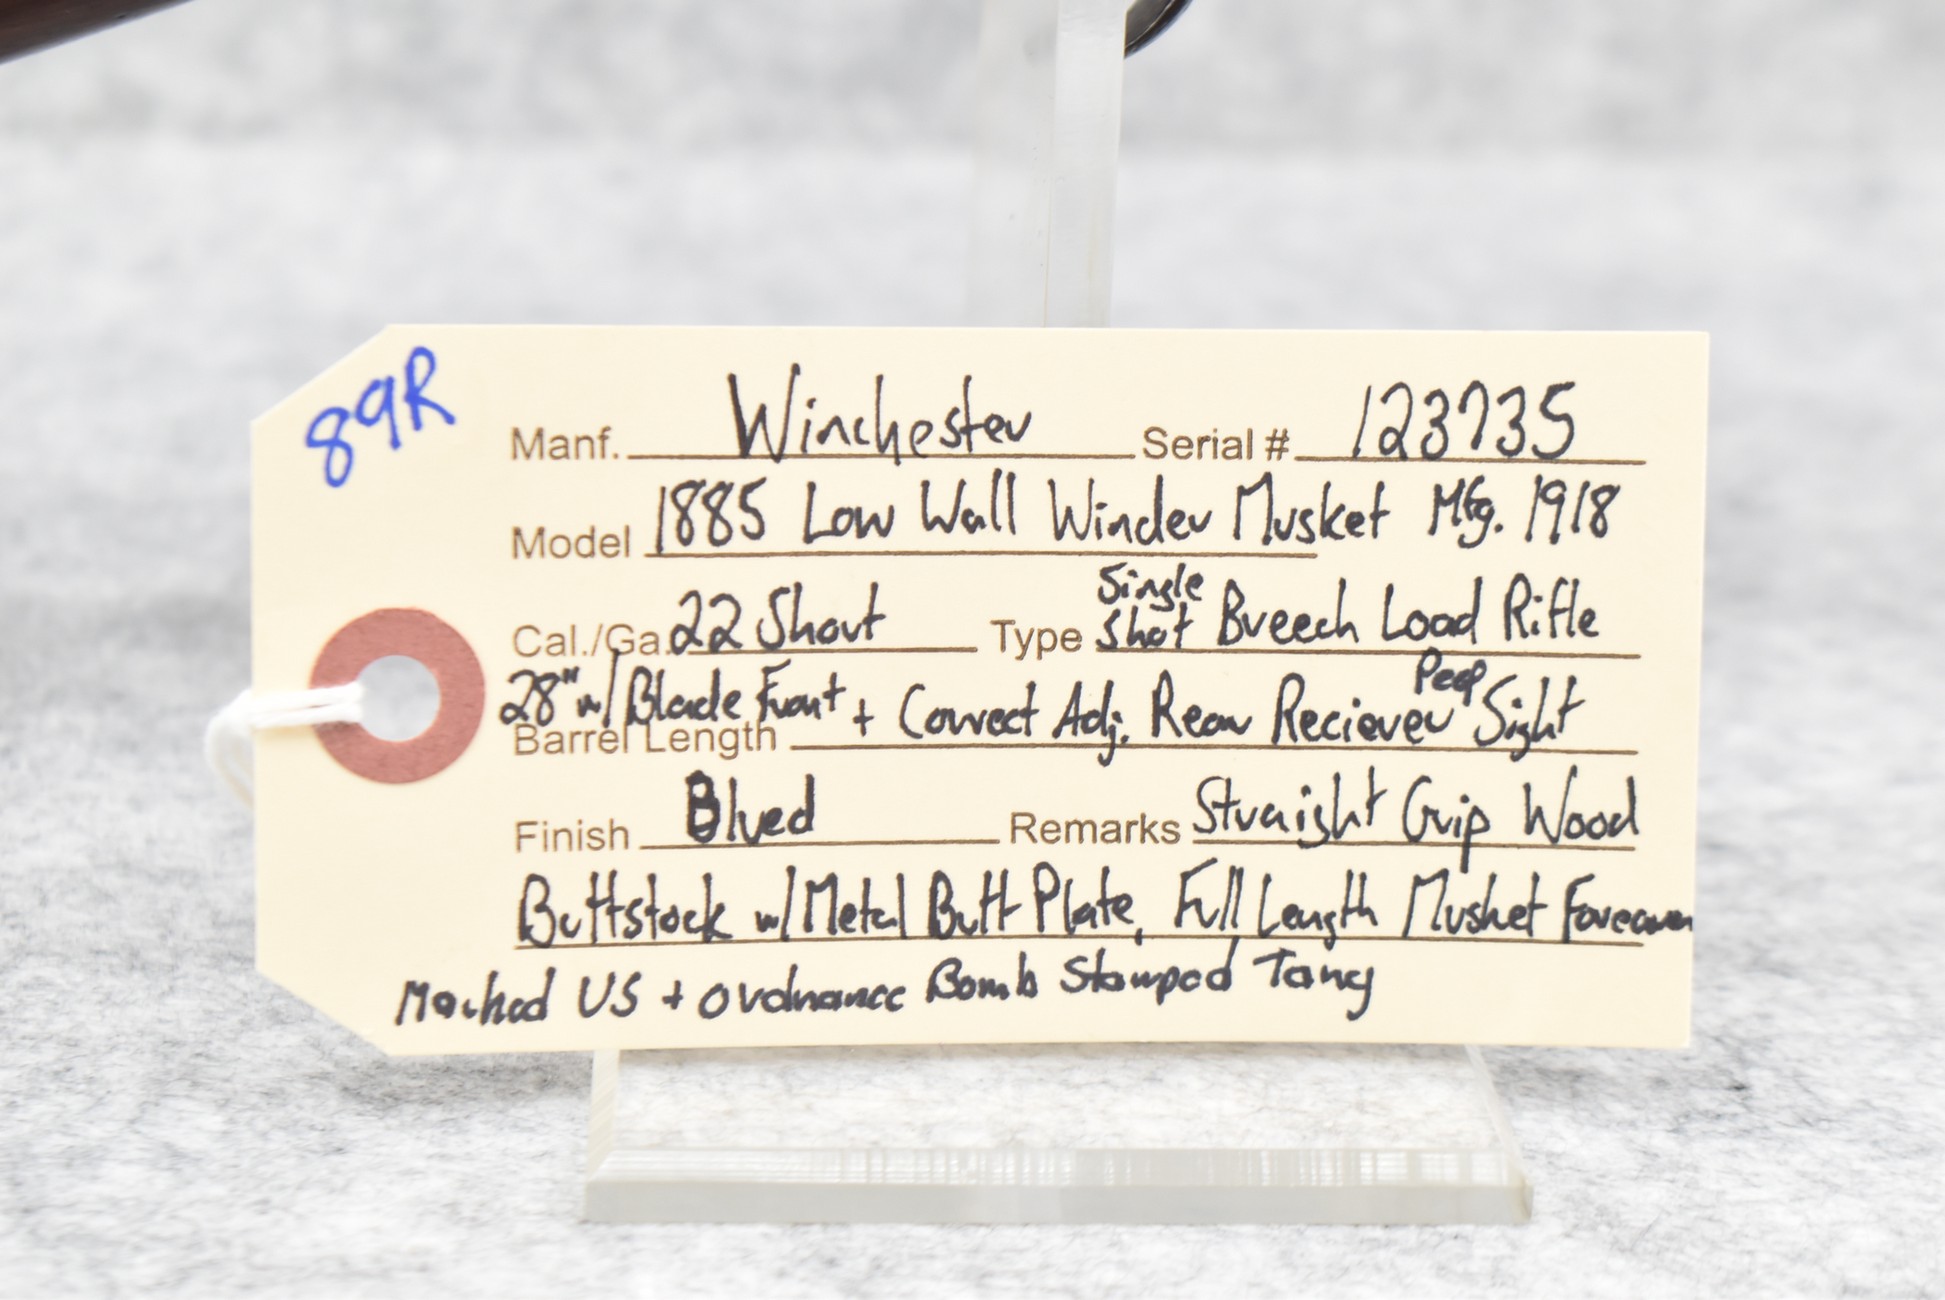 89R
Manf. Winchester Serial # 123735
Model 1885 Low Wall Winder Musket Mfg. 1918
Cal./Ga. 22 Short Type Single Shot Breech Load Rifle
28" w/ Blade Front + Correct Adj. Rear Reciever Peep Sight
Barrel Length
Finish Blued Remarks Straight Grip Wood
Buttstock w/ Metal Butt Plate, Full Length Musket Forearm
Marked US + Ordnance Bomb Stamped Tang